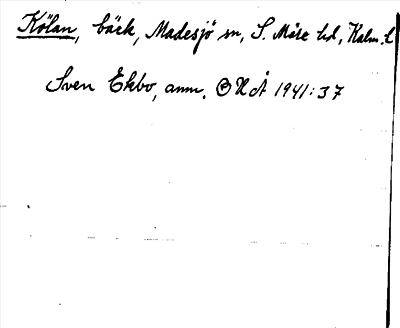 Kölan, bäck, Madesjö sn, S. Möre hd, Kalm. l
Sven Ekbo, anm. ONoÅ 1941:37